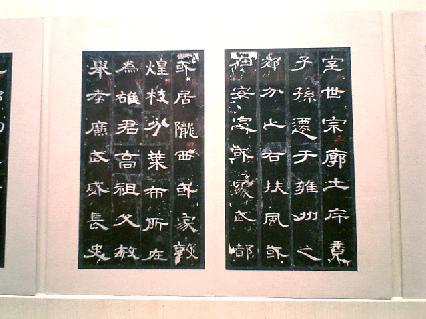 室世宗廓土斥竟
子孫遷于雍州之
郊分止右扶風或
在安定或處武都
或居隴西或家敦
煌枝分葉布所在
為雄君高祖父敏
舉孝廉武威長史